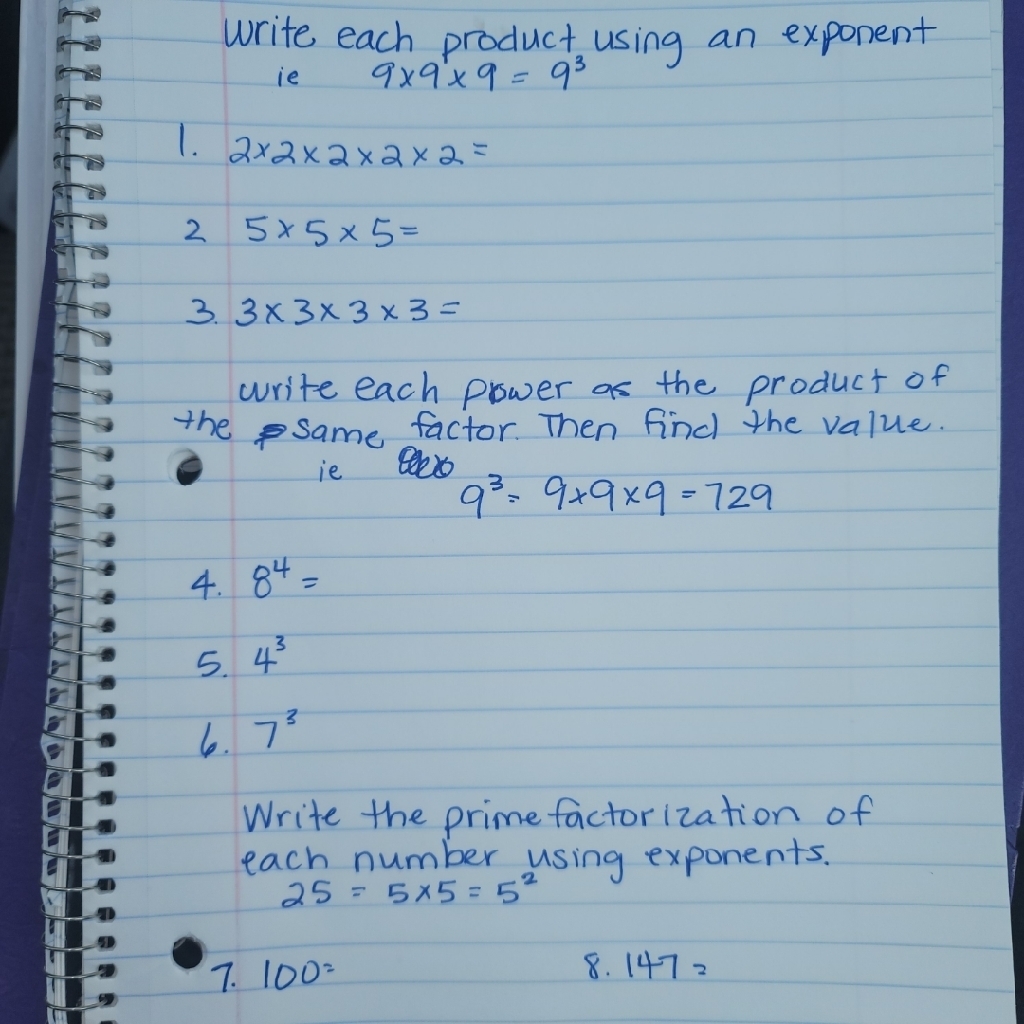 write each product using an exponent
ie 9x9x9 = 9³
1. 2x2x2x2x2=
2 5x5x5=
3. 3x3x3x3=
write each power as the product of
the same factor. Then find the value.
ie
9³= 9x9x9=729
4. 8⁴=
5. 4³
6. 7³
Write the prime factorization of
each number using exponents.
25 = 5x5 = 5²
7. 100= 8. 147=